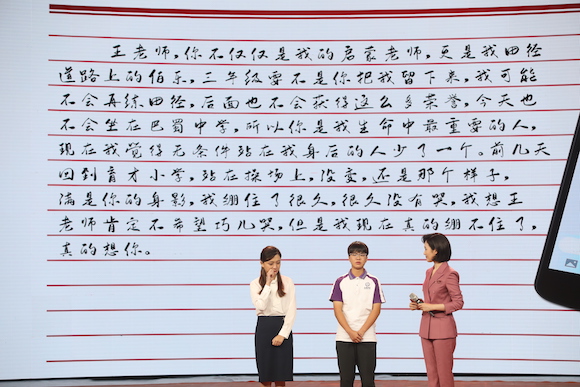 王老师，你不仅仅是我的启蒙老师，更是我田径
道路上的伯乐，三年级要不是你把我留下来，我可能
不会再练田径，后面也不会获得这么多荣誉，今天也
不会坐在巴蜀中学，所以你是我生命中最重要的人，
现在我觉得无条件站在我身后的人少了一个。前几天
回到育才小学，站在操场上，没变，还是那个样子，
满是你的身影，我绷住了很久，很久没有哭，我想王
老师肯定不希望巧儿哭，但是我现在真的绷不住了，
真的想你。